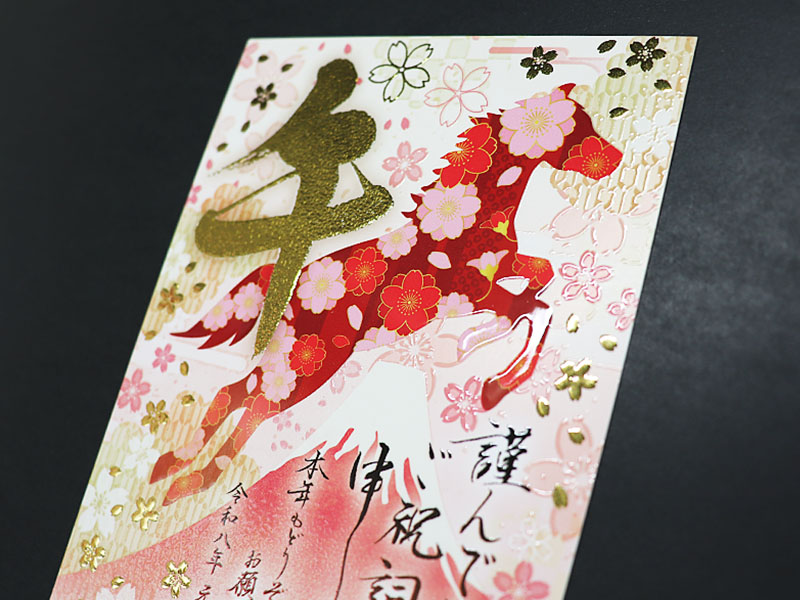 午
謹んで
ご祝詞
申
本年もどうぞ
お願
令和八年 元